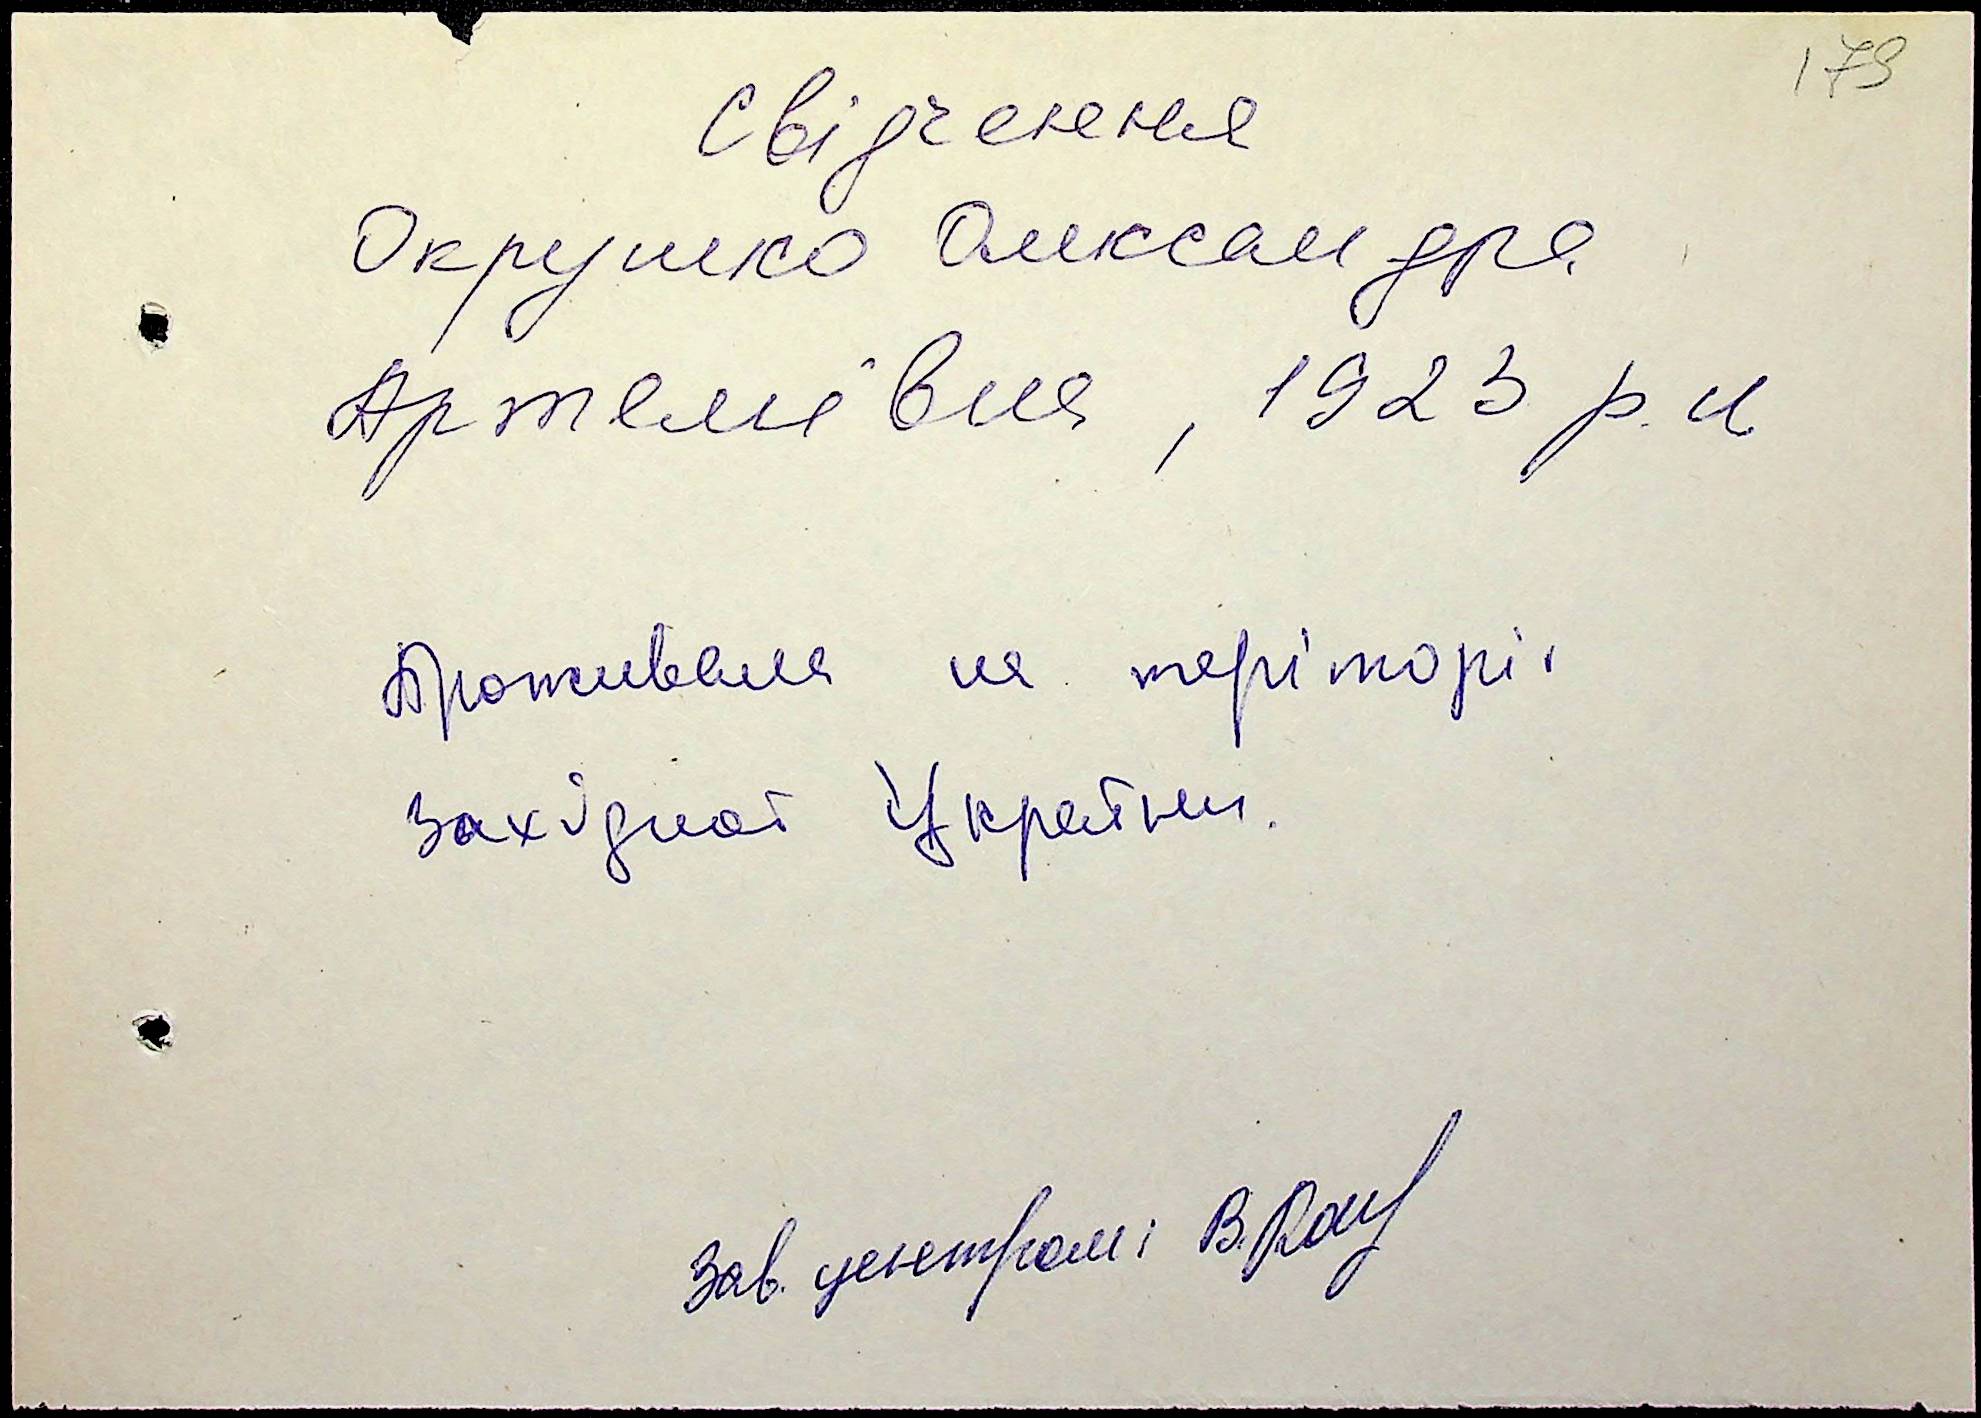 179
Свідчення
Окрушко Олександра
Артемівна, 1923 р. н
Проживала на теріторіі
Західної України.
Зав. центром: